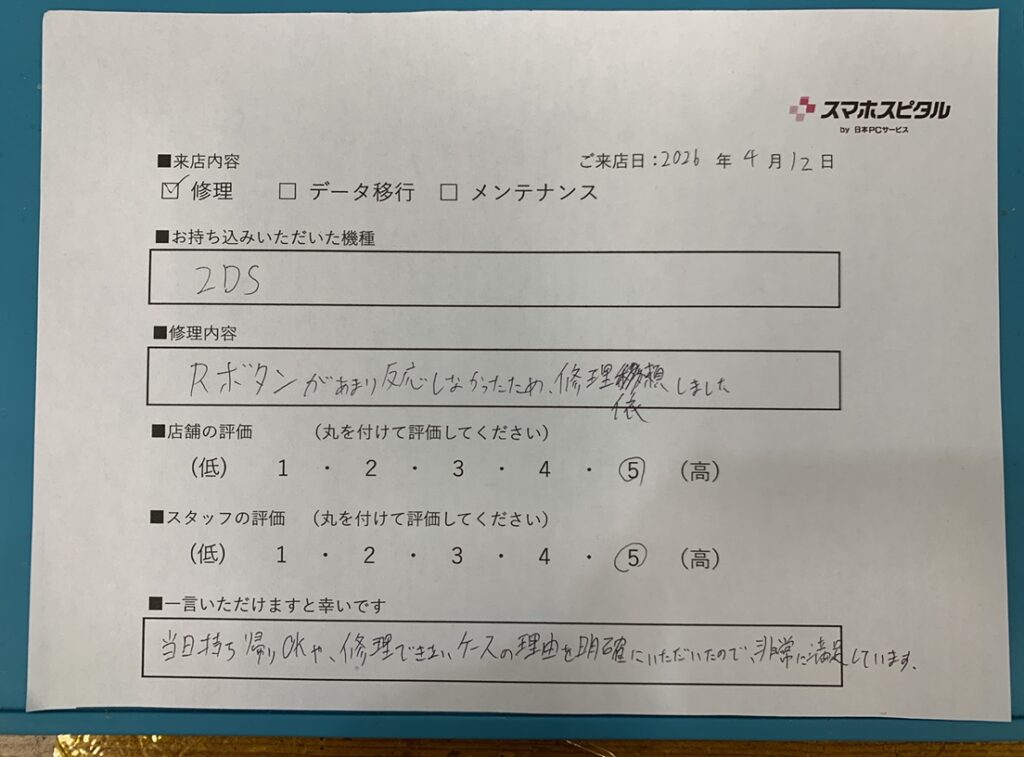 スマホスピタル
by 日本PCサービス
■来店内容 ご来店日:2026 年 4 月 12 日
☑ 修理 □ データ移行 □ メンテナンス
■お持ち込みいただいた機種
2DS
■修理内容
Rボタンがあまり反応しなかったため、修理依頼しました
■店舗の評価 (丸を付けて評価してください)
(低) 1 ・ 2 ・ 3 ・ 4 ・ ⑤ (高)
■スタッフの評価 (丸を付けて評価してください)
(低) 1 ・ 2 ・ 3 ・ 4 ・ ⑤ (高)
■一言いただけますと幸いです
当日持ち帰りOKや、修理できないケースの理由を明確にいただいたので、非常に満足しています。